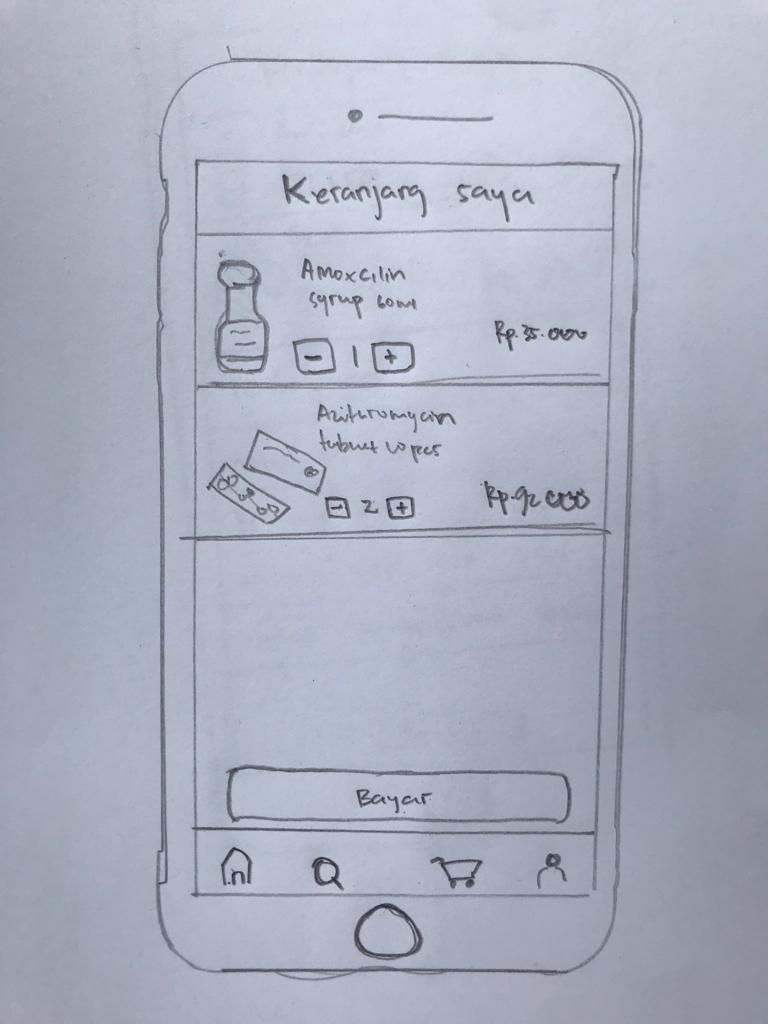 Keranjang saya
Amoxcilin
syrup 60ml
Rp.35.000
- 1 +
Azithromycin
tablet 10 pcs
- 2 +
Rp.92
Bayar